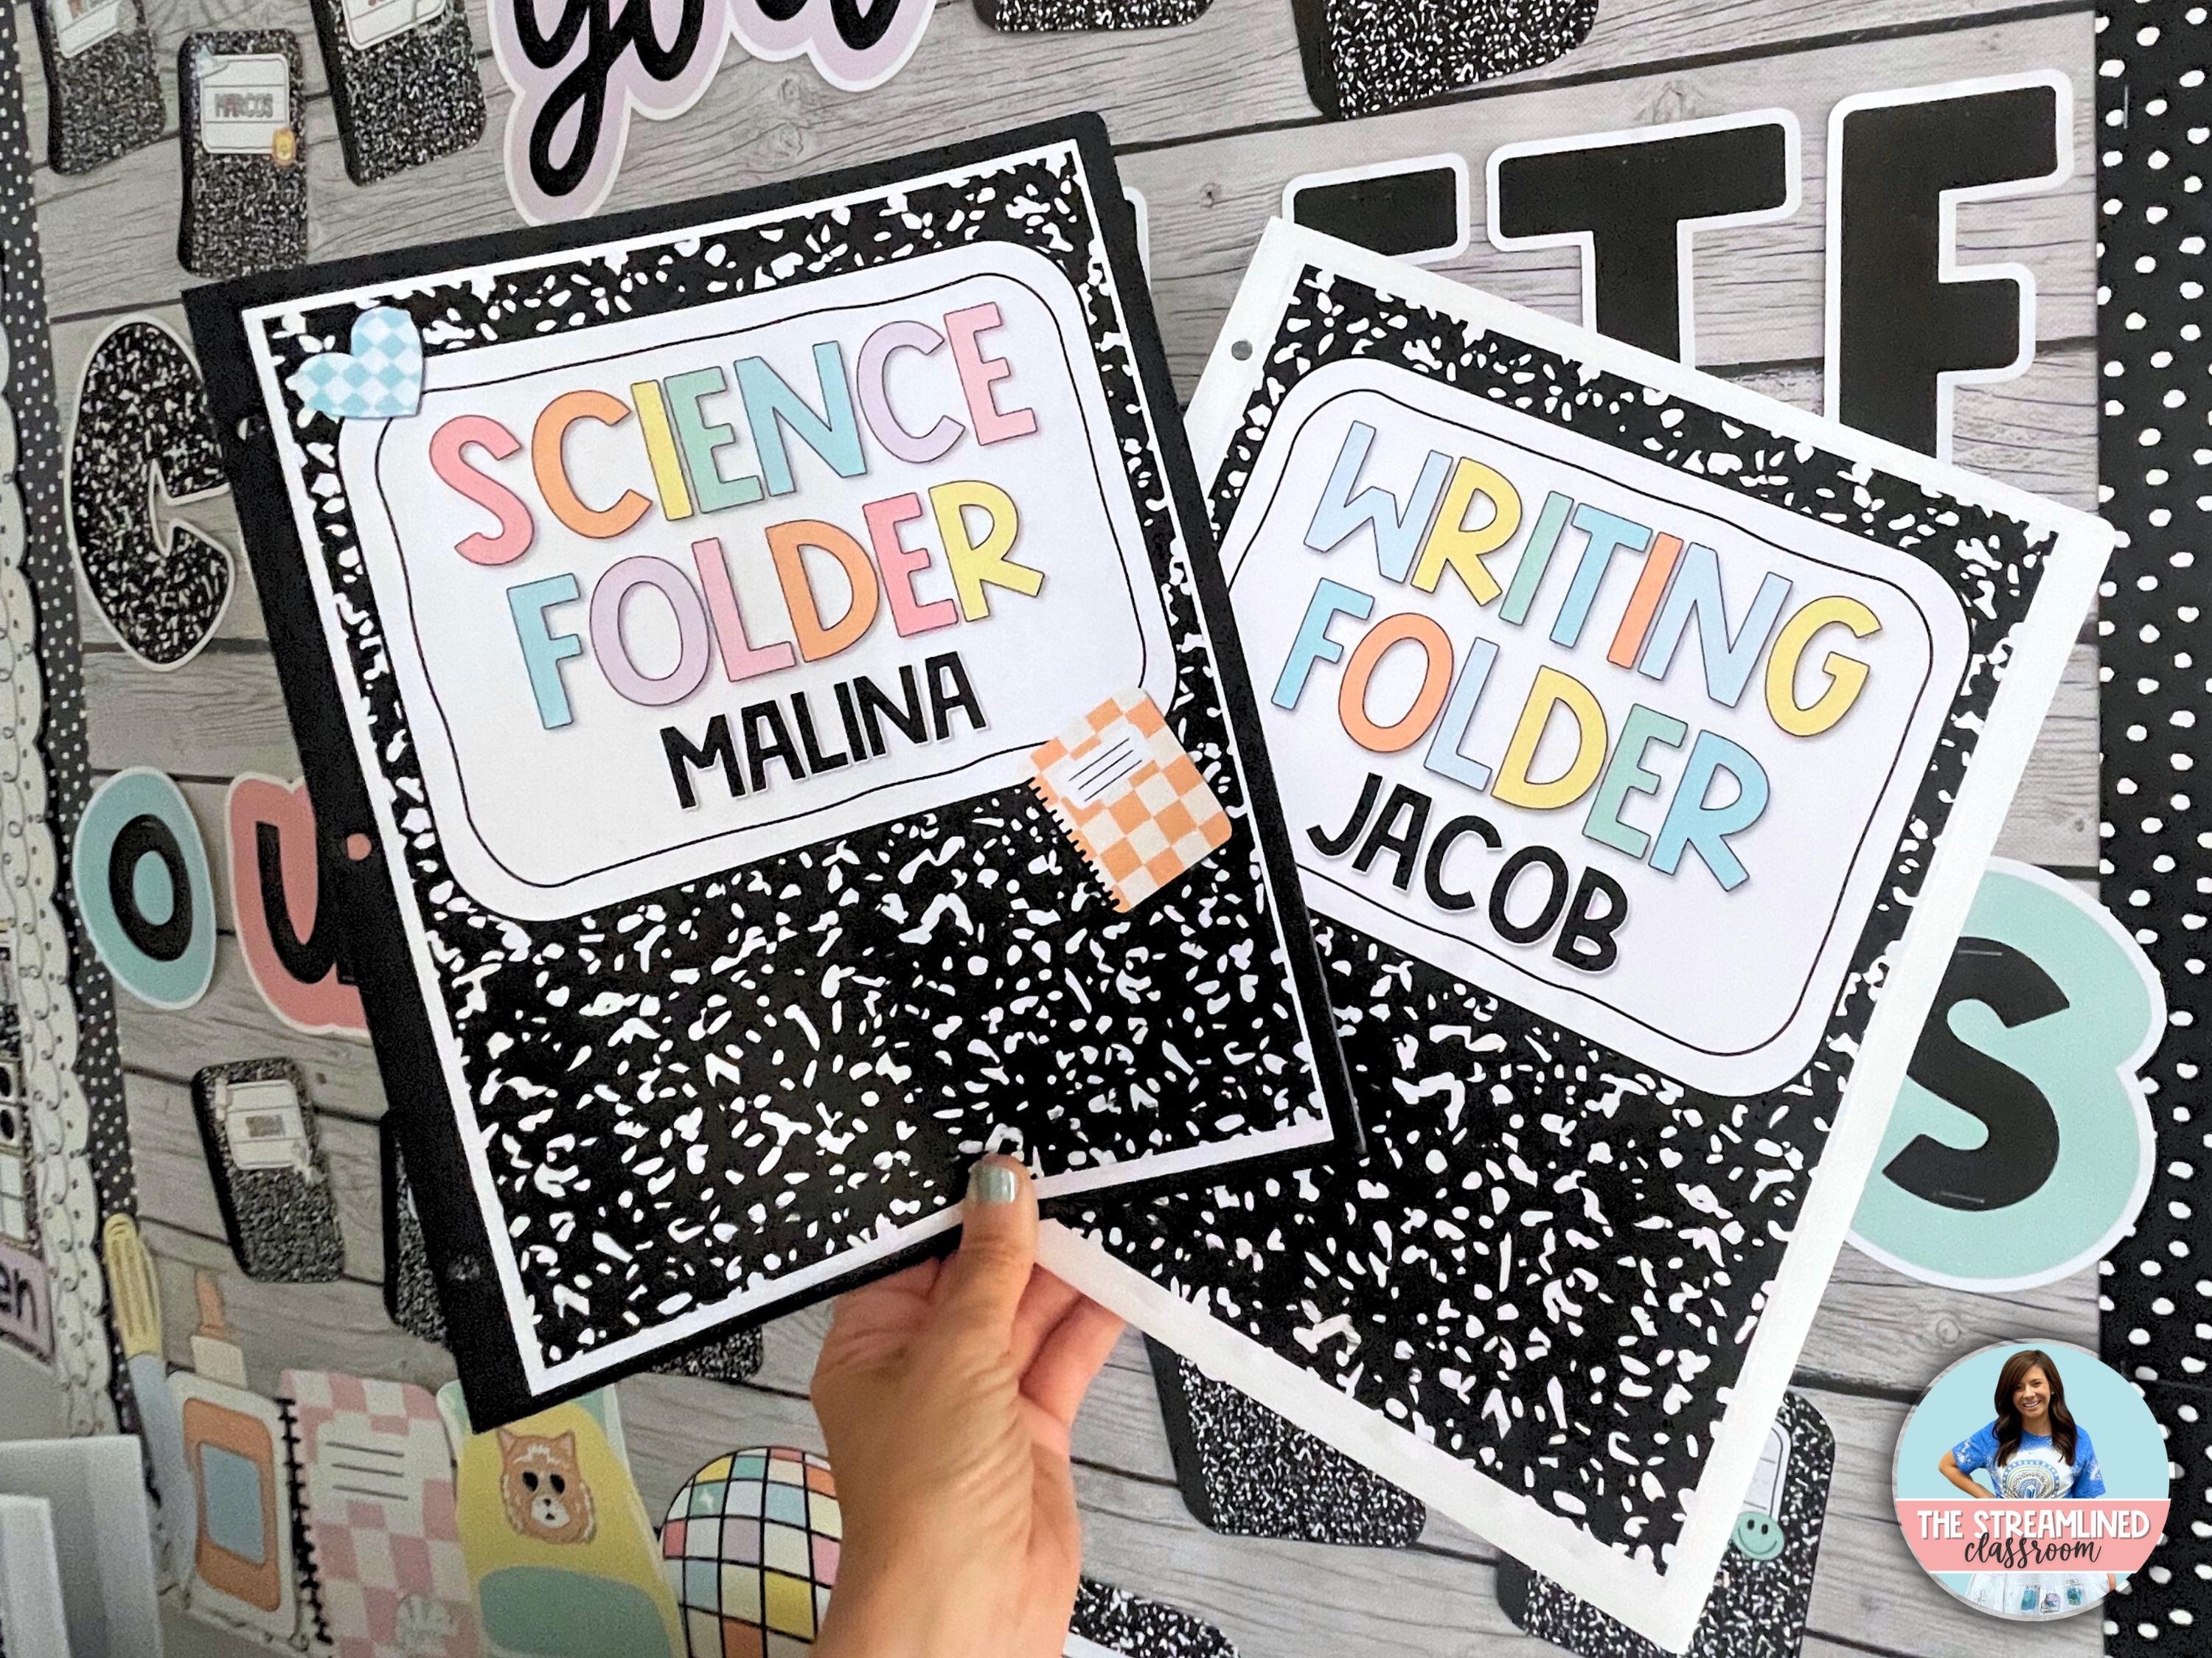 you
MARCOS
SCIENCE
FOLDER
MALINA
WRITING
FOLDER
JACOB
C
OU
S
THE STREAMLINED
classroom